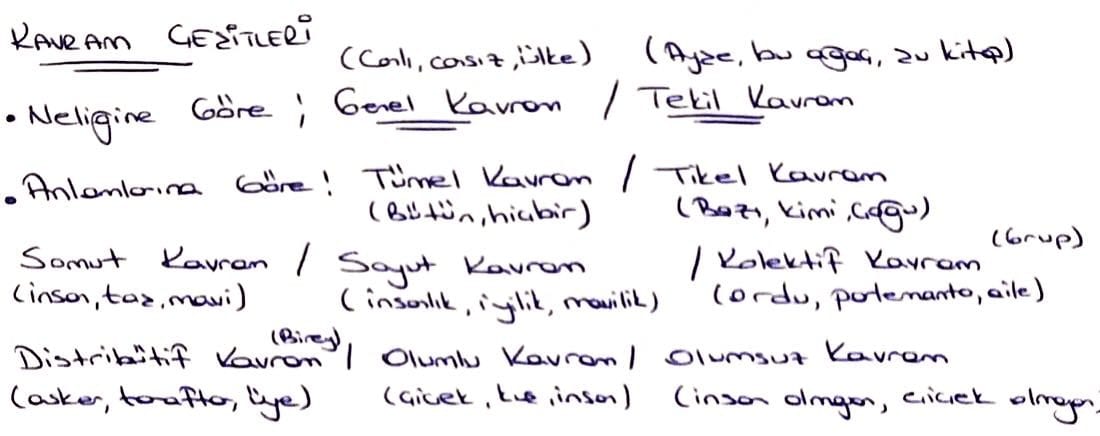 KAVRAM ÇEŞİTLERİ
(Canlı, cansız, ülke) (Ayşe, bu ağaç, şu kitap)
• Neliğine Göre ; Genel Kavram / Tekil Kavram
• Anlamlarına Göre ! Tümel Kavram / Tikel Kavram
(Bütün, hiçbir) (Bazı, kimi, çoğu)
(Grup)
Somut Kavram / Soyut Kavram / Kolektif Kavram
(insan, taş, mavi) (insanlık, iyilik, mavilik) (ordu, portemanto, aile)
(Birey)
Distribütif Kavram / Olumlu Kavram / Olumsuz Kavram
(asker, taraftar, üye) (çiçek, kuş, insan) (insan olmayan, çiçek olmayan)